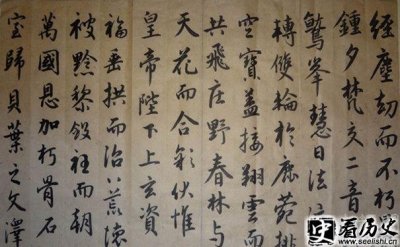 經塵劫而不朽
鍾夕梵交二音
鷲峯慧日法
轉雙輪於鹿菀排
空寶蓋接翔雲而
共飛庄野春林与
天花而合彩伏惟
皇帝陛下上玄資
福垂拱而治八荒
被黔黎斂衽而朝
萬國恩加朽骨石
室歸貝葉之文澤
看历史
www.seelishi.cn